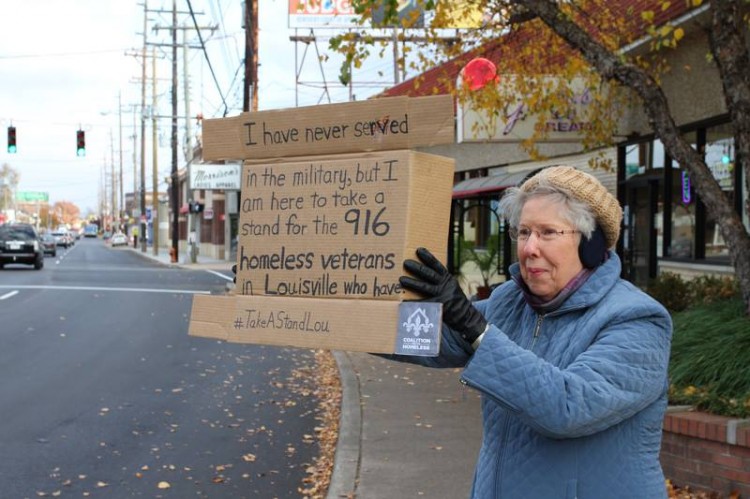 Morrison's
I have never served
in the military, but I
am here to take a
stand for the 916
homeless veterans
in Louisville who have.
#TakeAStandLou
COALITION
HOMELESS